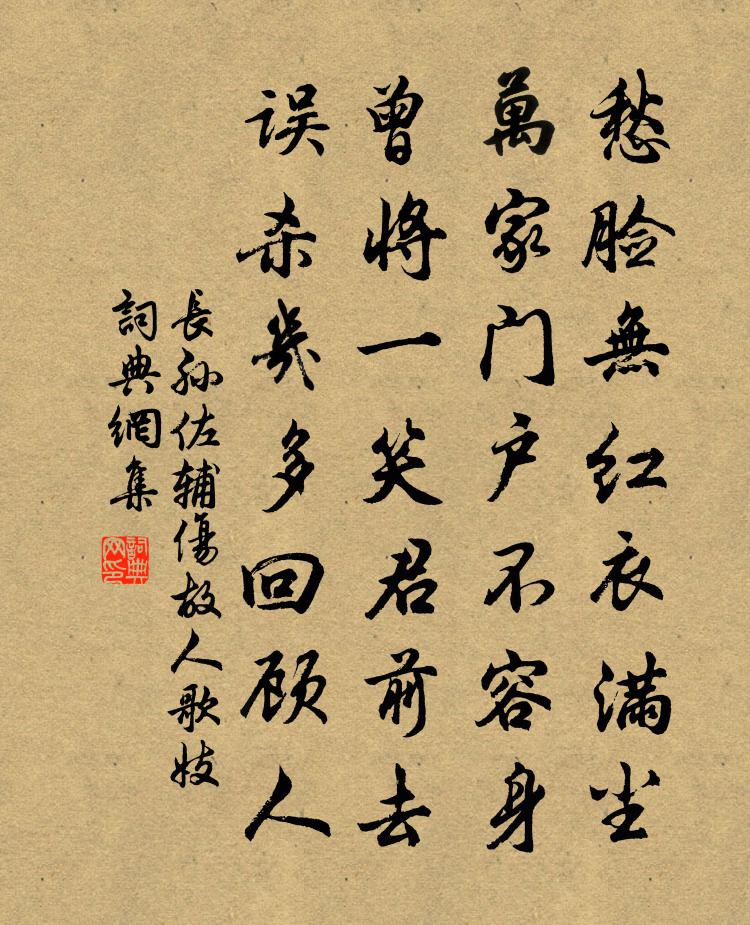 愁脸無红衣满尘
萬家门户不容身
曾將一笑君前去
误杀幾多回顾人
長孙佐辅傷故人歌妓
詞典網集
詞典网印